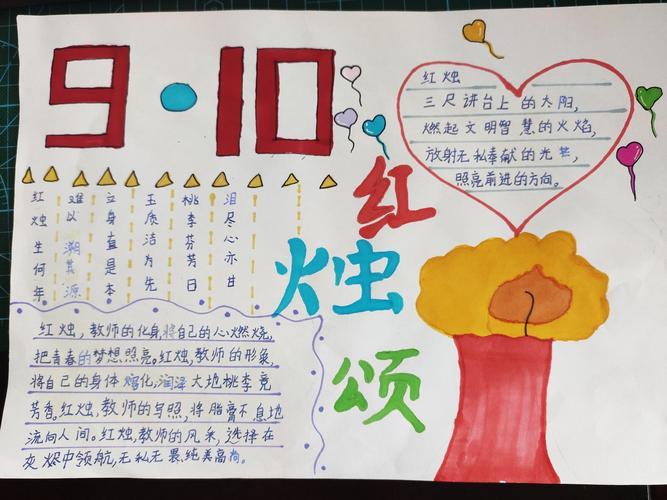 9·10
红烛
三尺讲台上的太阳,
燃起文明智慧的火焰,
放射无私奉献的光芒,
照亮前进的方向。
红烛颂
红烛生何年
难以溯其源
立身直是本
玉质洁为先
桃李芬芳日
泪尽心亦甘
红烛,教师的化身,将自己的心燃烧,
把青春的梦想照亮。红烛,教师的形象,
将自己的身体熔化,润泽大地桃李竟
芳香。红烛,教师的写照,将脂膏不息地
流向人间。红烛,教师的风采,选择在
灰烬中领航,无私无畏,纯美高尚。